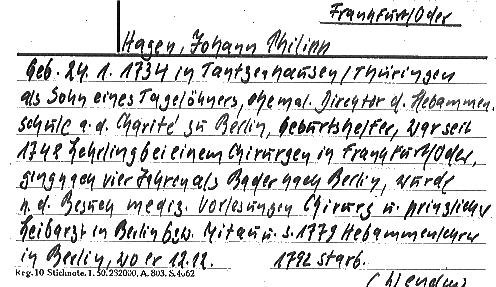 Frankfurt/Oder
Hagen, Johann Philipp
Geb. 24. 1. 1734 in Tantzenhausen/Thüringen
als Sohn eines Tagelöhners, ehemal. Direktor d. Hebammen
schule a.d. Charité zu Berlin, Geburtshelfer, war seit
1748 Lehrling bei einem Chirurgen in Frankfurt/Oder,
ging nach vier Jahren als Bader nach Berlin, wurde
n. d. Besuch mediz. Vorlesungen Chirurg u. prinzlicher
Leibarzt in Berlin bzw. Mitau u. s. 1779 Hebammenlehrer
in Berlin, wo er 12.12. 1792 starb.
Krg. 10 Stichnote. 1. 50. 232000. A. 803. S. 4062